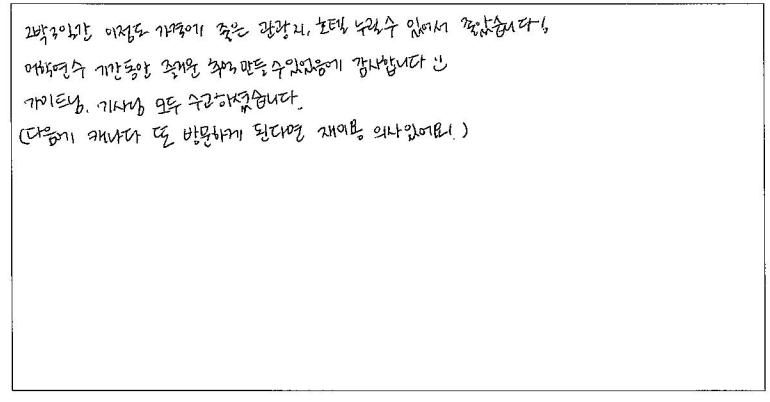 2박3일간 이정도 가격에 좋은 관광지, 호텔 누릴수 있어서 좋았습니다!
어학연수 기간동안 즐거운 추억 만들 수있었음에 감사합니다 :)
가이드님, 기사님 모두 수고하셨습니다.
(다음에 캐나다 또 방문하게 된다면 재이용 의사있어요!)